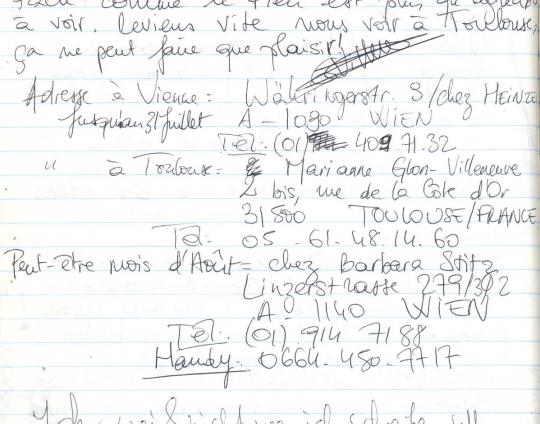 comme ce rien est plus qu'
à voir. Reviens vite nous voir à Toulouse,
ça ne peut faire que plaisir!
Adresse à Vienne = Währingerstr. 3/chez HEINZE
Jusqu'au 31 Juillet A - 1090 WIEN
Tel: (01) 409.71.32
" à Toulouse = Marianne Glon-Villeneuve
2 bis, rue de la Côte d'Or
31500 TOULOUSE/FRANCE
Tel: 05 - 61.48.14.60
Peut-être mois d'Août = chez Barbara Stitz
Linzerstrasse 279/302
A - 1140 WIEN
Tel: (01) 914 7188
Handy: 0664-450-7717